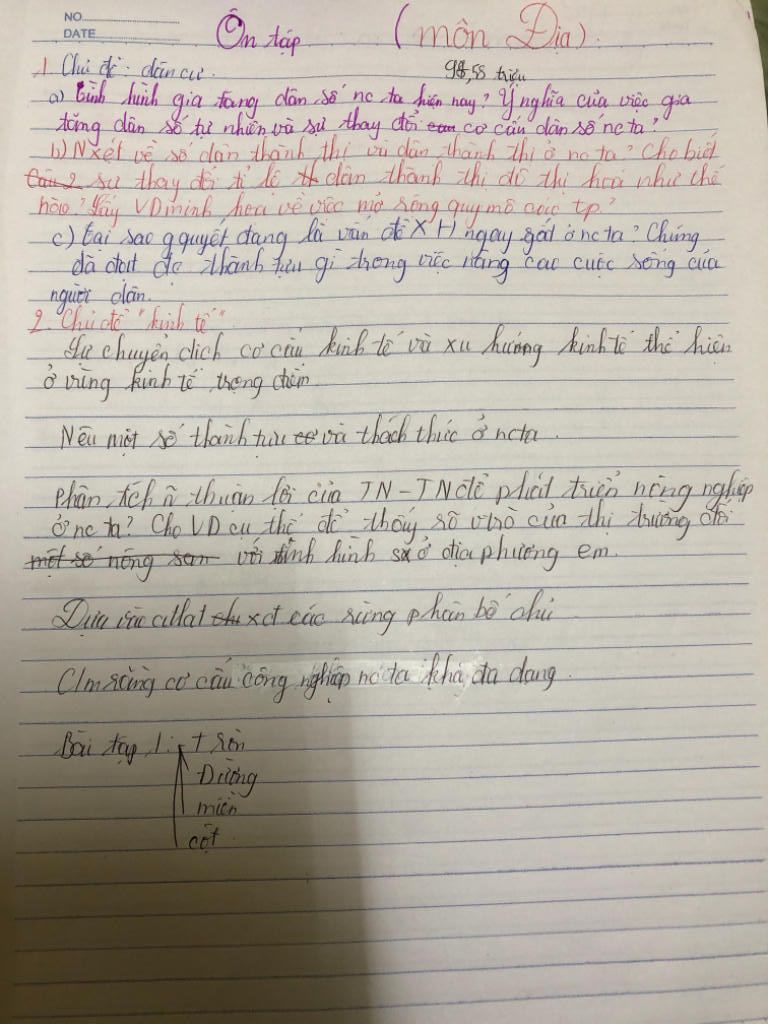 NO.
DATE
Ôn tập (môn Địa).
1. Chủ đề: dân cư 98,58 triệu
a) Tình hình gia tăng dân số nc ta hiện nay? Ý nghĩa của việc gia
tăng dân số tự nhiên và sự thay đổi cơ cấu dân số nc ta?
b) Nxét về số dân thành thị và dân thành thị ở nc ta? Cho biết
Câu 2 sự thay đổi tỉ lệ dân thành thị đô thị hoá như thế
nào? Lấy VD minh hoạ về việc mở rộng quy mô các tp?
c) tại sao gquyết đang là vấn đề XH ngay gắt ở nc ta? Chúng
đã đạt đc thành tựu gì trong việc nâng cao cuộc sống của
người dân.
2. Chủ đề "kinh tế"
Sự chuyển dịch cơ cấu kinh tế và xu hướng kinh tế thể hiện
ở vùng kinh tế trọng điểm
Nêu một số thành tựu và thách thức ở ncta.
Phân tích n thuận lợi của TN-TN để phát triển nông nghiệp
ở nc ta? Cho VD cụ thể để thấy rõ vtrò của thị trường đối
một số nông sản với tình hình sx ở địa phương em.
Dựa vào atlat xđ các rừng phân bố chủ
C/m rằng cơ cấu công nghiệp nc ta khá đa dạng.
Bài tập 1: + tròn
Đường
miền
cột